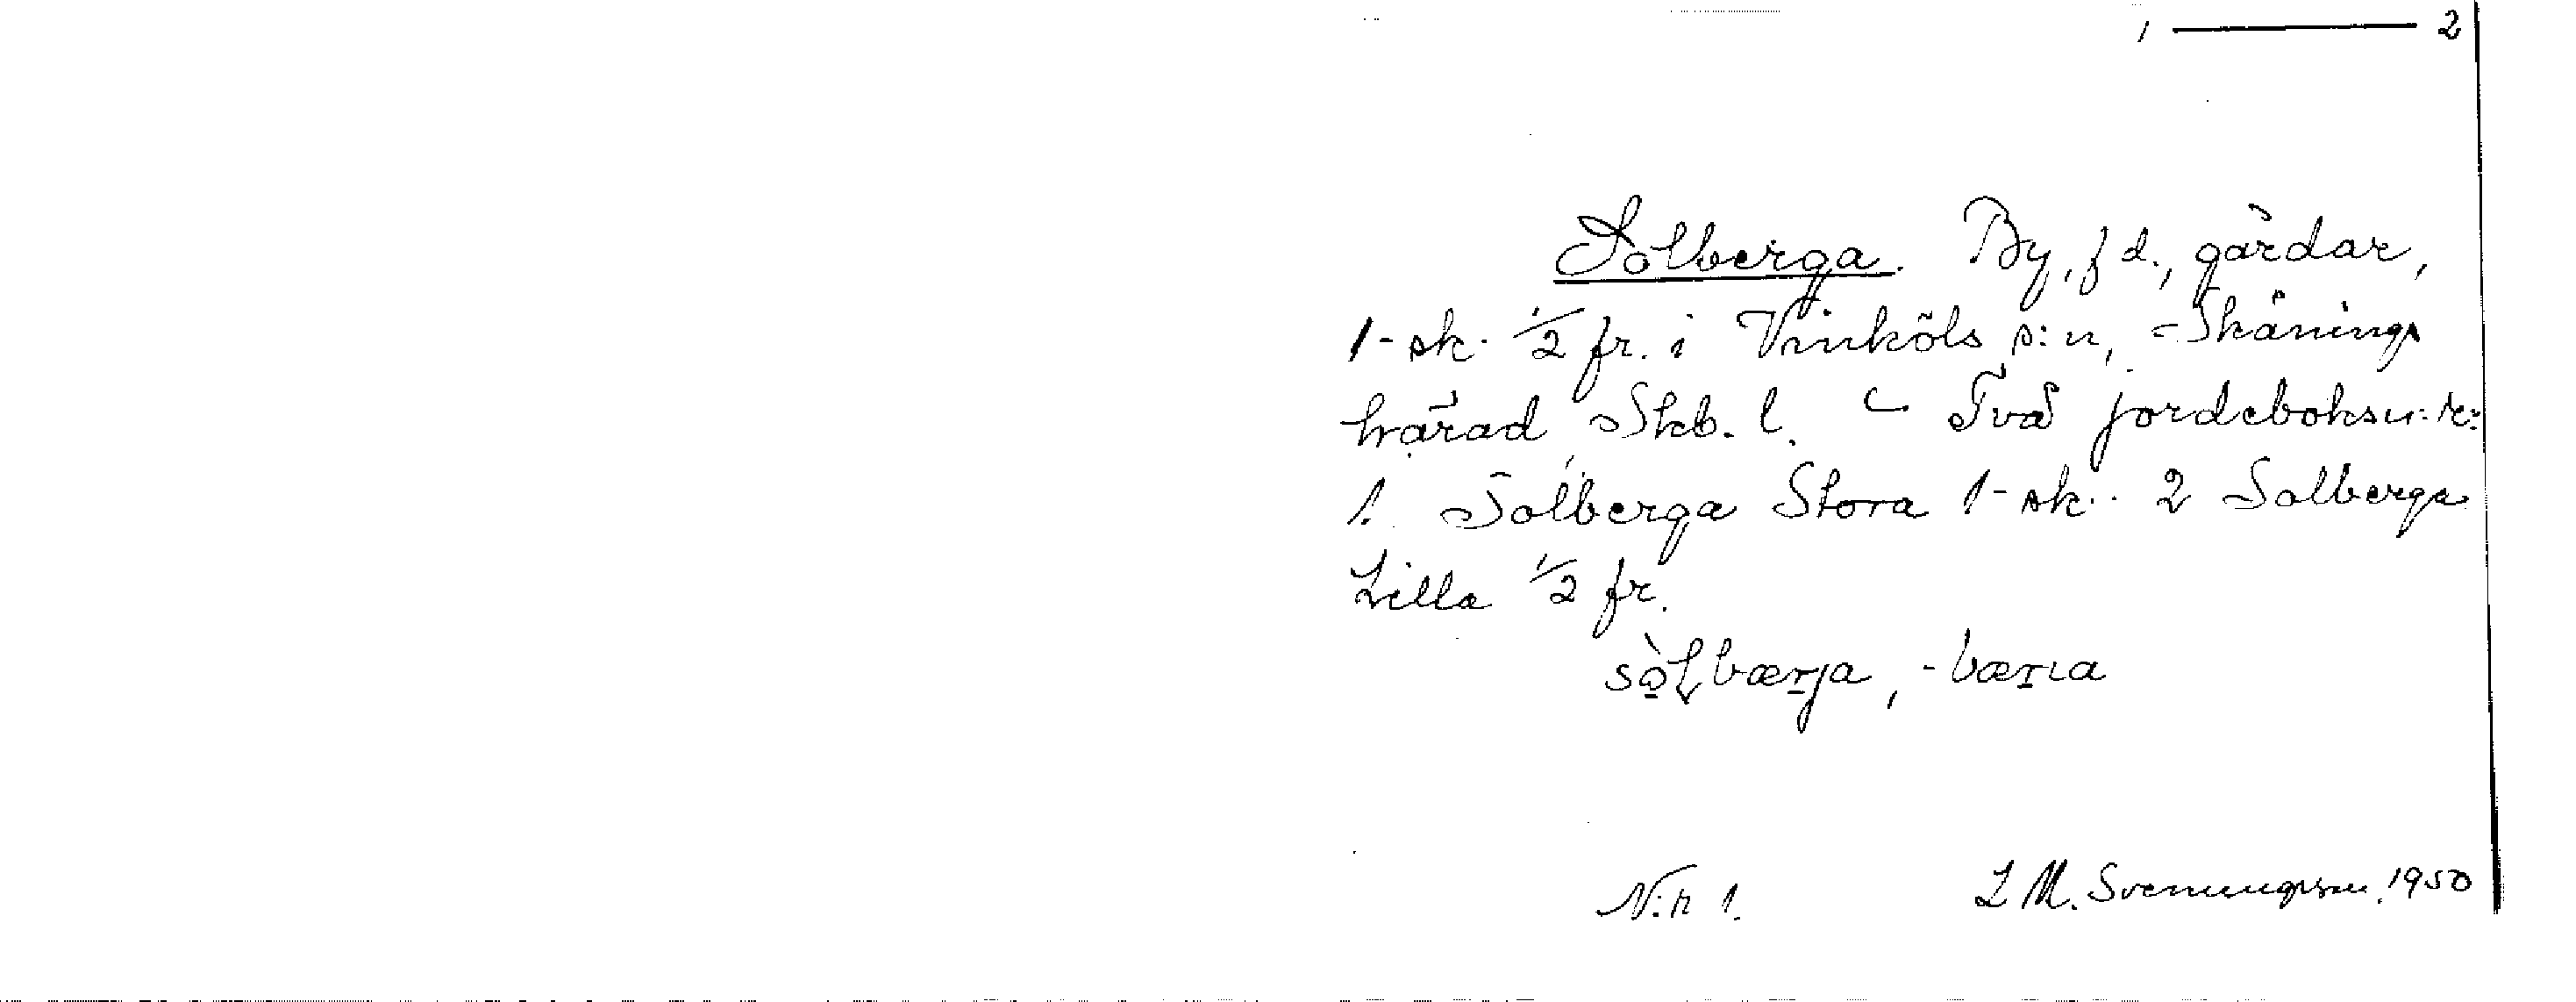 1 — 2
Solberga. By, f d., gårdar,
1-sk. 1/2 fr. i Vinköls s:n, - Skånings
härad Skb. l. - Två jordeboksn:r:
1. Solberga Stora 1-sk. 2 Solberga
Lilla 1/2 fr.
sòɫbærja, -bærıa
N:r 1. L M. Svenungsson. 1950